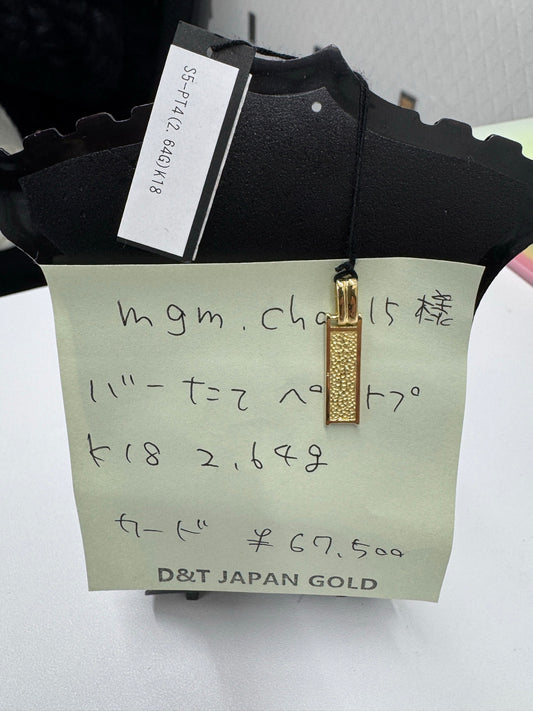 S5-PT4(2.64G)K18
mgm.cha 15 様
バーたて ペ トプ
K18 2.64g
カード ¥67,500
D&T JAPAN GOLD